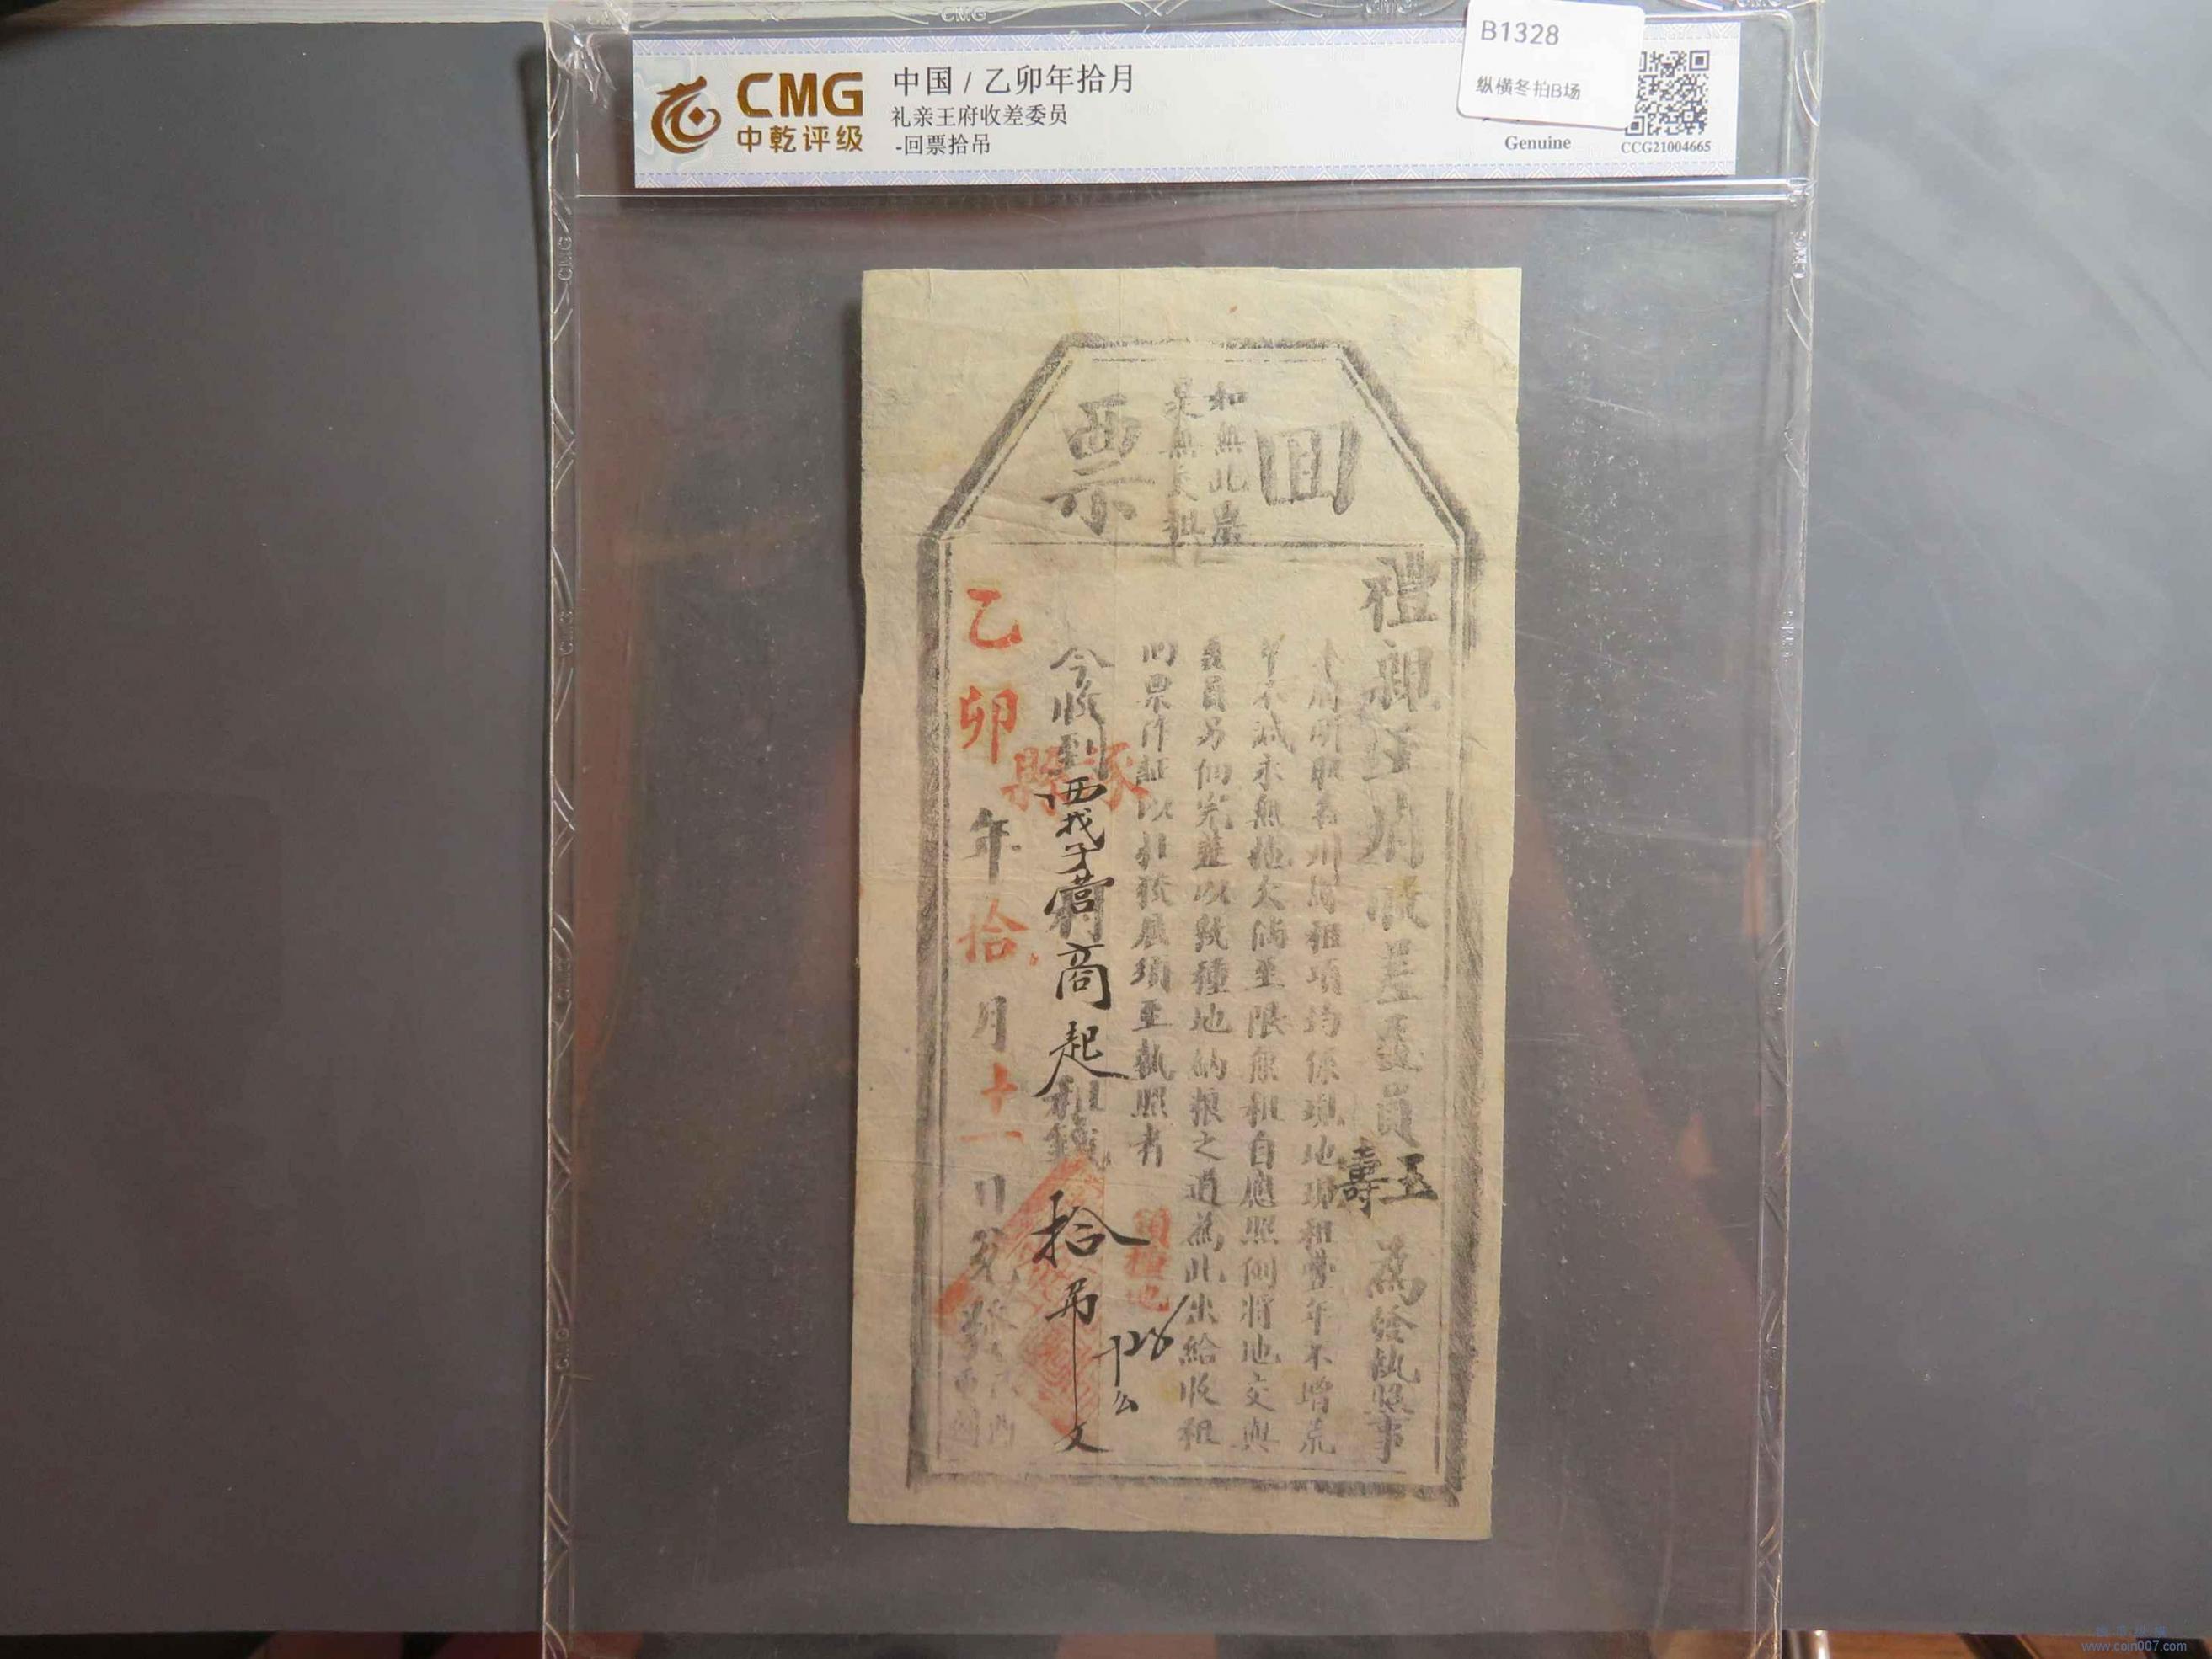 CMG
中乾评级
中国 / 乙卯年拾月
礼亲王府收差委员
-回票拾吊
B1328
纵横冬拍B场
Genuine
CCG21004665
回票
如無此票
是無交租
禮親王府收差委員
玉壽
為給執照事
本府所取各州縣租項均係現地現租豐年不增荒
年不減永無拖欠倘至限無租自應照例將地交與
委員另佃完並以敦種地納粮之道為此出給收租
回票作証以杜後展須至執照者
領種地
涿縣
今收到西我子营村高起租錢拾吊文
乙卯年拾月十一日
www.coin007.com